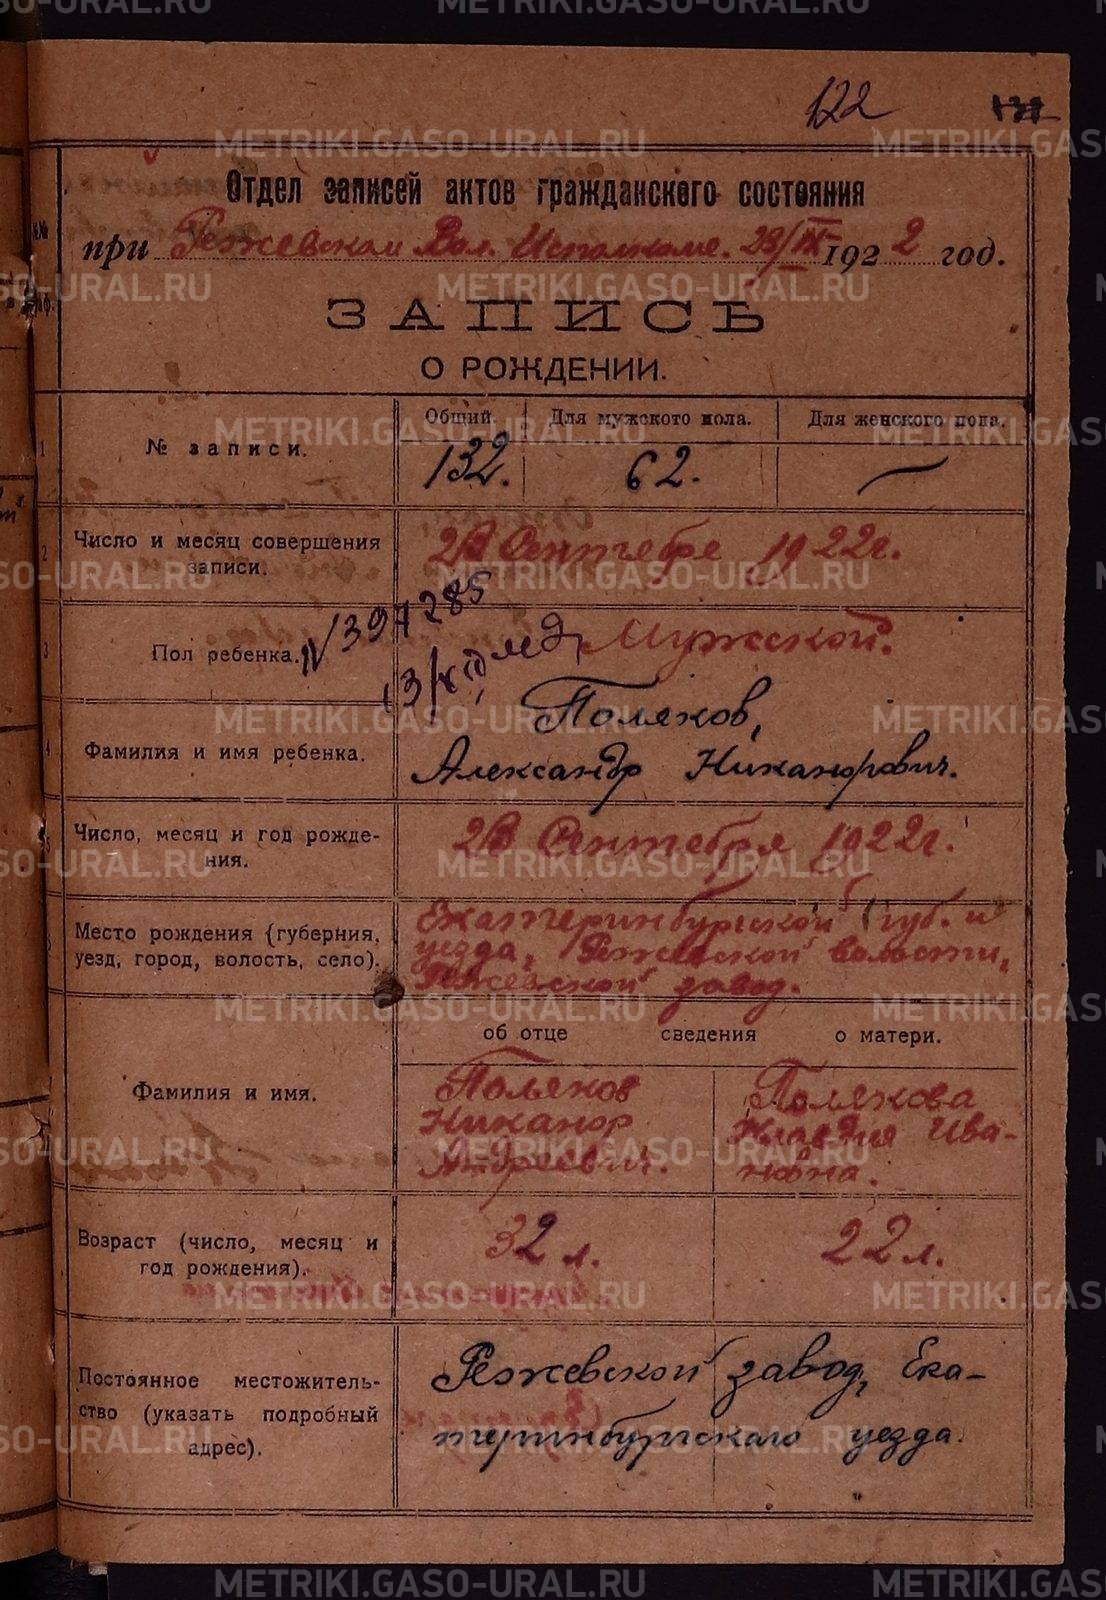 122
Отдел записей актов гражданского состояния
при Режевском Вол. Исполкоме. 23/IX 1922 год.
ЗАПИСЬ
О РОЖДЕНИИ.
1
№ записи.
Общий.
Для мужского пола.
Для женского пола.
132.
62.
—
2
Число и месяц совершения
записи.
23 Сентебре 1922г.
3
Пол ребенка.
N 397285
Мужской.
4
Фамилия и имя ребенка.
Поляков,
Александр Никанорович.
5
Число, месяц и год рожде-
ния.
23 Сентебря 1922г.
Место рождения (губерния,
уезд, город, волость, село).
Екатеринбургской губ. и
уезда, Режевской волости,
Режевской завод.
об отце сведения о матери.
Фамилия и имя.
Поляков
Никанор
Андреевич.
Полякова
Клавдия Ива-
новна.
Возраст (число, месяц и
год рождения).
32 л.
22 л.
Постоянное местожитель-
ство (указать подробный
адрес).
Режевской завод, Ека-
теринбургского уезда.
METRIKI.GASO-URAL.RU